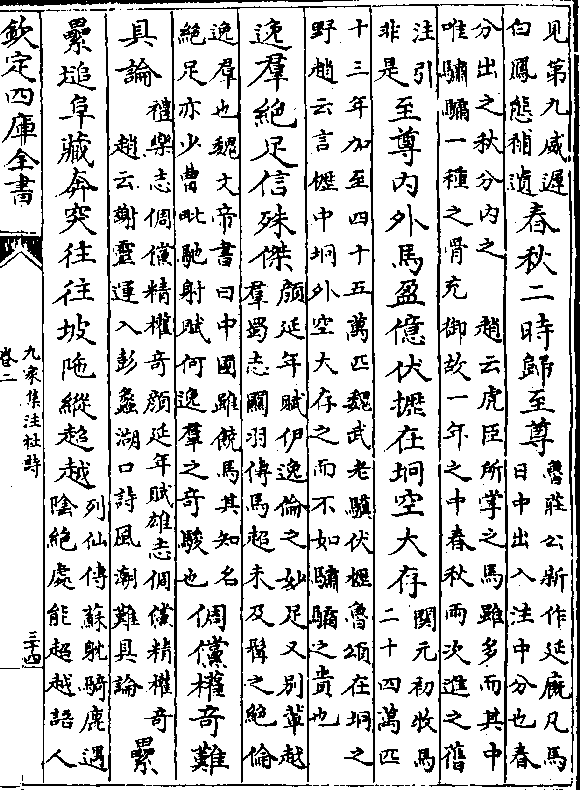 見第九威遲
白鳳態補遺
春秋二時歸至尊
魯莊公新作延廐凡馬
日中出入注中分也春
分出之秋分内之　趙云虎臣所掌之馬雖多而其中
唯驌驦一種之骨充御故一年之中春秋兩次進之舊
注引
非是
至尊内外馬盈億伏櫪在坰空大存
開元初牧馬
二十四萬匹
十三年加至四十五萬匹魏武老驥伏櫪魯頌在坰之
野趙云言櫪中坰外空大存之而不如驌驦之貴也
逸羣絶足信殊傑
顔延年賦伊逸倫之妙足又别輩越
羣蜀志關羽傳馬超未及髯之絶倫
逸羣也魏文帝書曰中國雖饒馬其知名
絶足亦少曹毗馳射賦何逸羣之竒駿也
倜儻權竒難
具論
禮樂志倜儻精權竒顔延年賦雄志倜儻精權竒
趙云謝靈運入彭蠡湖口詩風潮難具論
纍
纍塠阜藏奔突往往坡陁縱超越
列仙傳蘇躭騎鹿遇
險絶處能超越語人
欽定四庫全書
九家集注杜詩
卷二
三十四